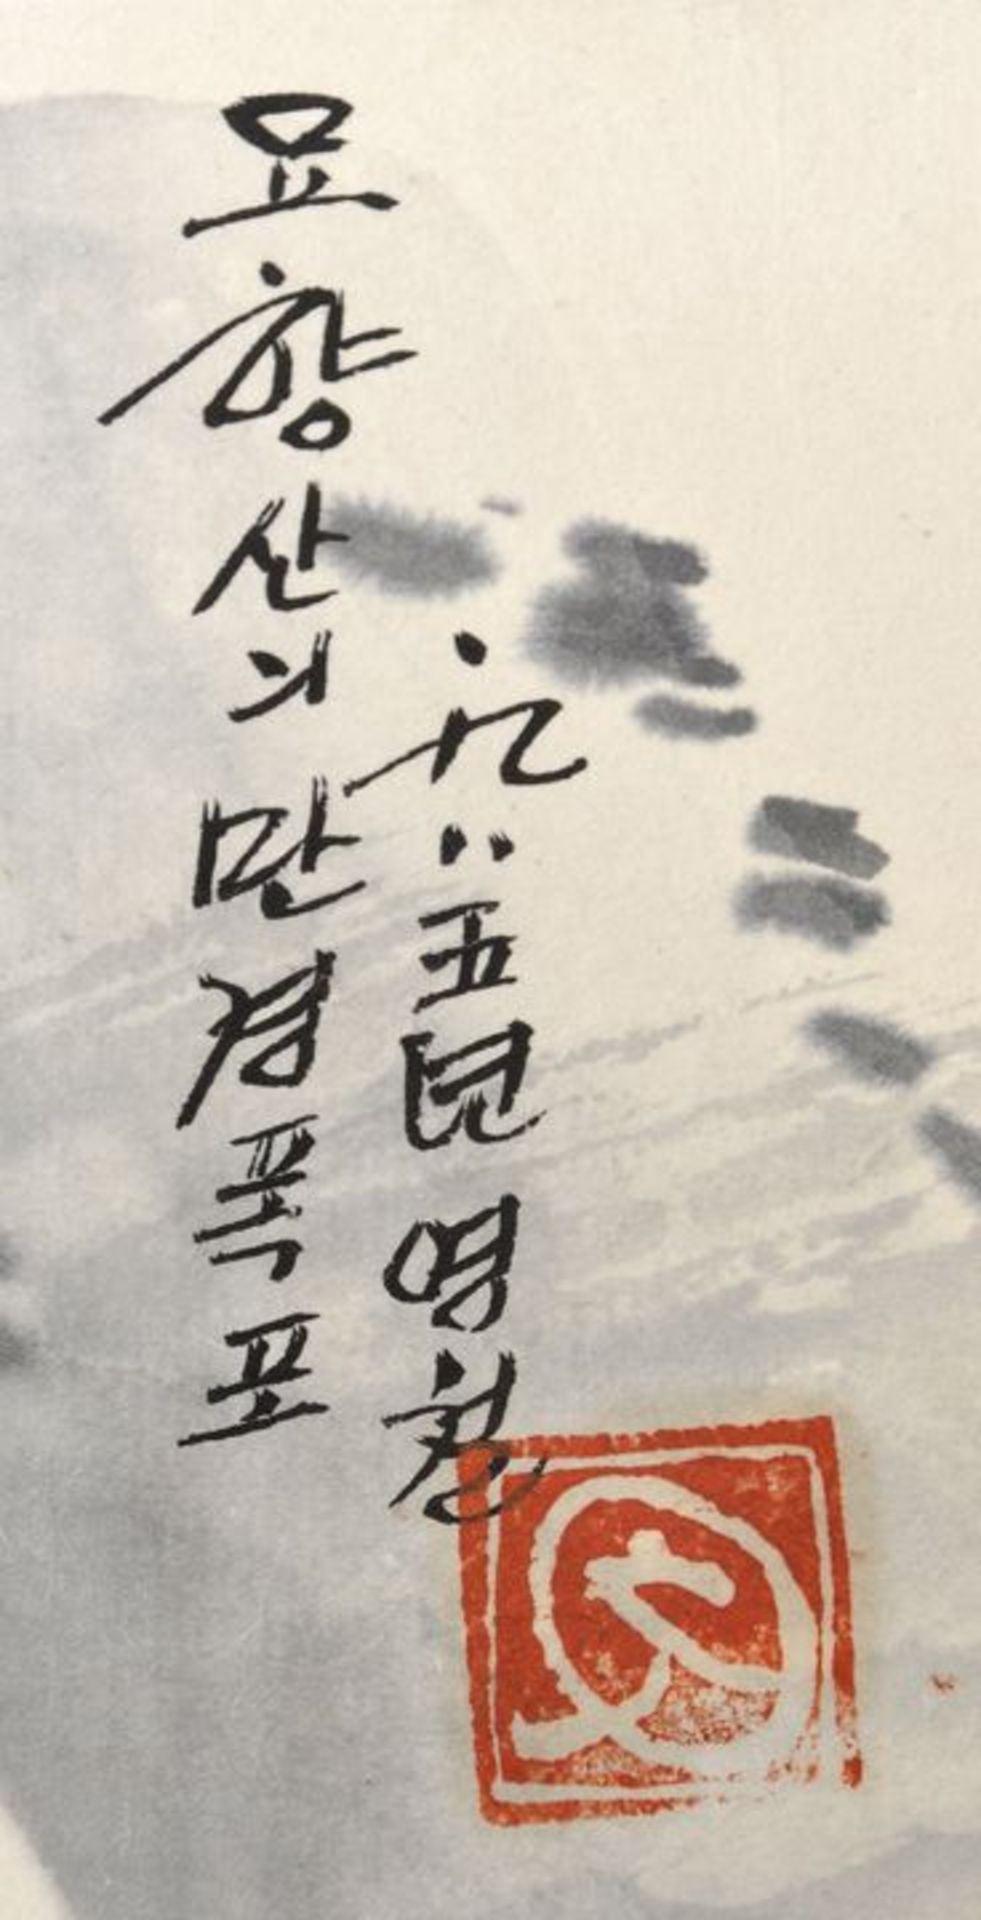 묘향산의 만경폭포
一九八五년 영철